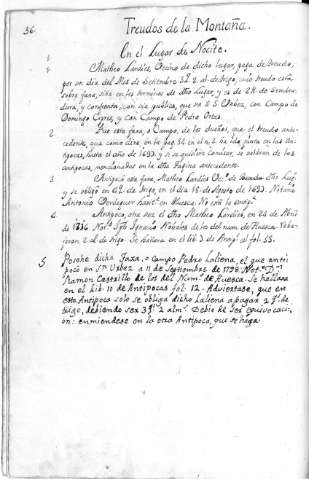 36.
Treudos de la Montaña.
En el Lugar de Nocito.
1 Matheo Lardiés, Vecino de dicho lugar, paga de treudo,
por un día del Mes de Septiembre 3q.s 2 al. de trigo, cuio treudo está
sobre faxa, sita en los terminos de dho Lugar, y es de 28 de Sembra
dura, y confrenta, con via publica, que va a S.n Urbez, con Campo de
Domingo Cipres, y con Campo de Pedro Otes.
2 Fue esta faxa, o Campo, de los dueños, que el treudo ante-
cedente, que como dixe, en la pag. 34 en el n.1 ha ido junta en los An-
tipocos, hasta el año de 1693. y se
antipocos, mencionados en la otra Pagina antecedente.
3 Antipocó esta faxa, Matheo Lardiés de dho Lug.r
y se obligó en 6q.s de trigo, en el dia 18 de Agosto de 1693. Notario
Antonio en Huesca. No está la antip.a
4 Antipocó, otra vez el dho Matheo Lardiés, en 24 de Abril
de 1696 Not.o Ignacio Nobales de los del num. de Huesca.
2 al. de trigo. Se hallara en el lib. 3 de Antip.s al fol. 53.
5 Posehe dicha Faxa, o Campo Pedro Laliena, el que anti-
pocó en S.n Urbez a 11 de Septiembre de 1728 Not.o D.n
Ramon Castrillo de los del Num.o de Huesca. Se hallara
en el Lib. 10 de Antipocas fol. 12. Adviertase, que en
esta Antipoca solo se obliga dicho Laliena a pagar 2 q.s de
trigo, debiendo ser 3q.s 2 alm.s Debio de ser equivocaci-
on: enmiendese en la otra Antipoca, que se haga